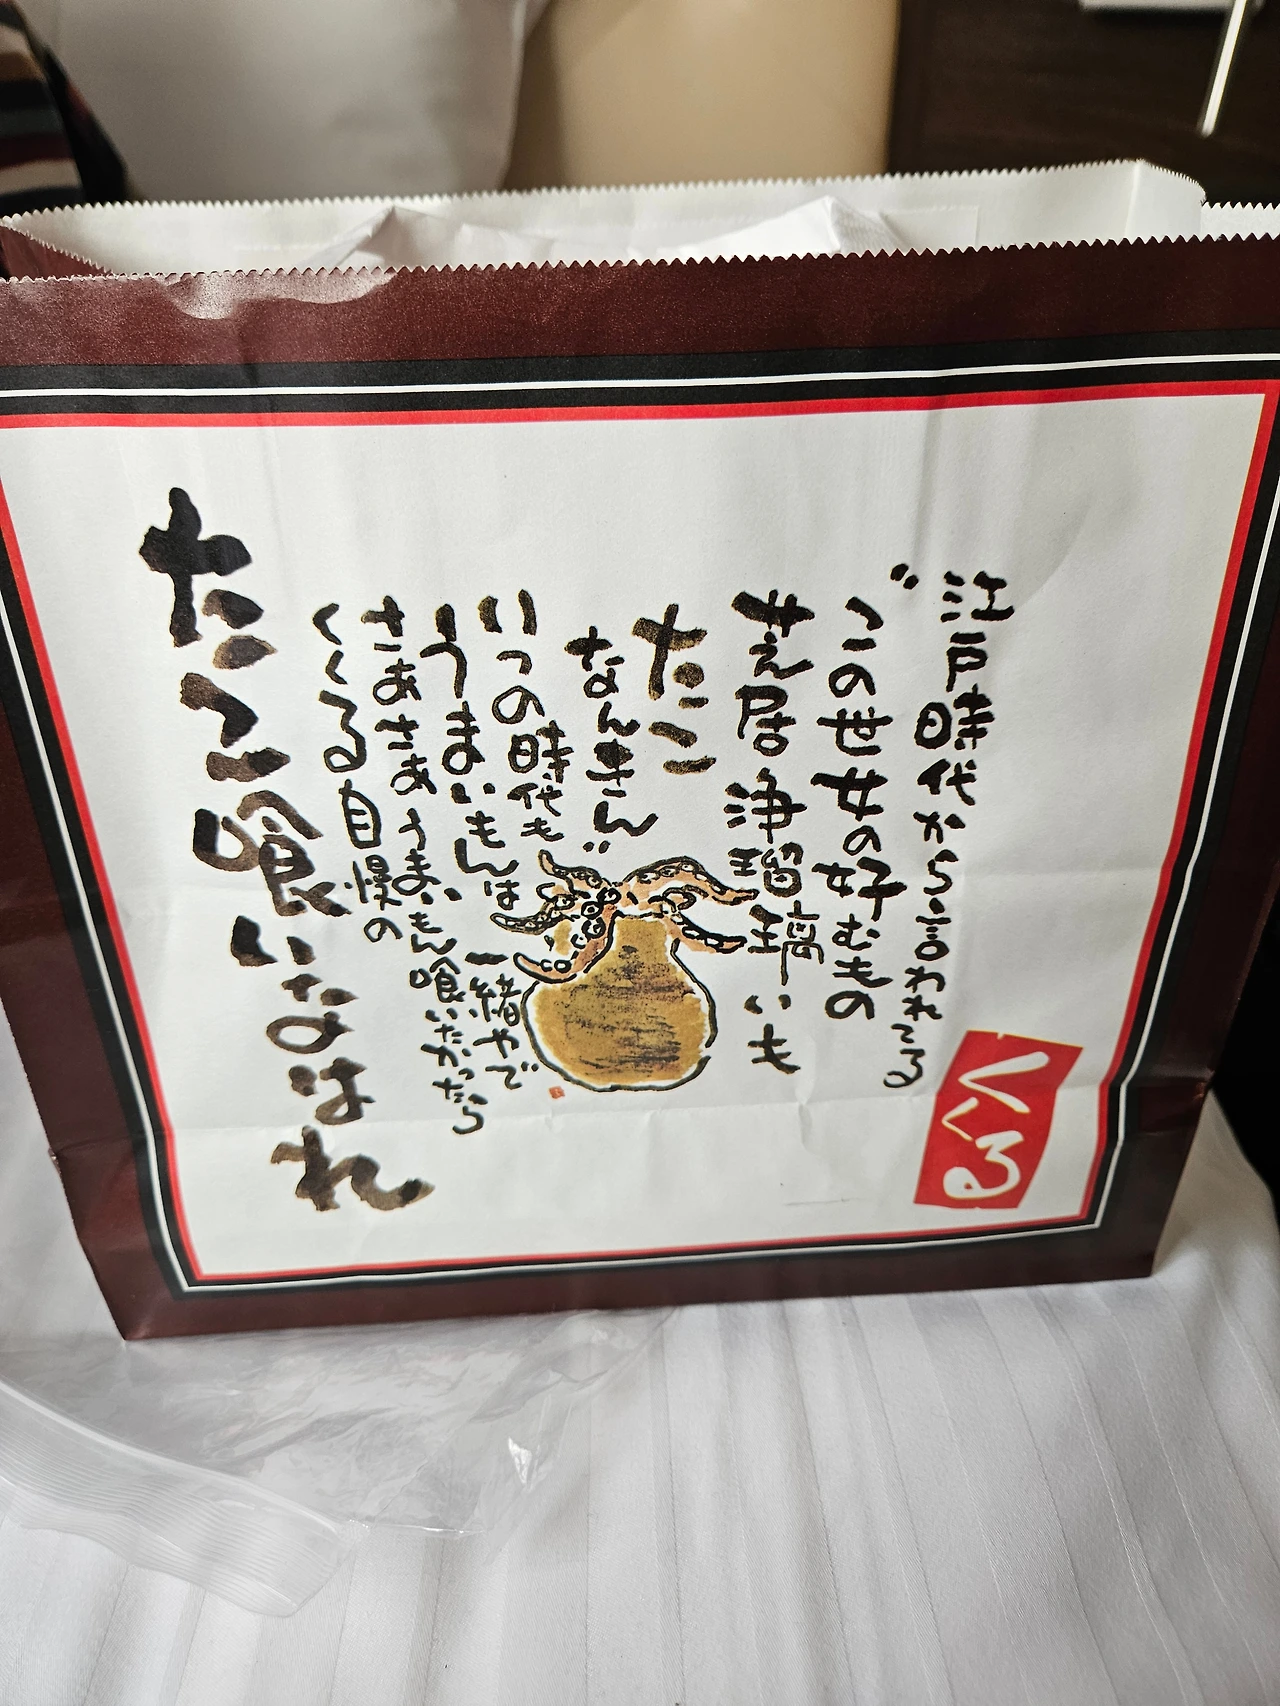 江戸時代から言われてる
〝この世女の好むもの
芝居浄瑠璃いも
たこ
なんきん〟
いつの時代も
うまいもんは一緒やで
さあさあうまいもん喰いたかったら
くくる自慢の
たこ喰いなはれ
くくる